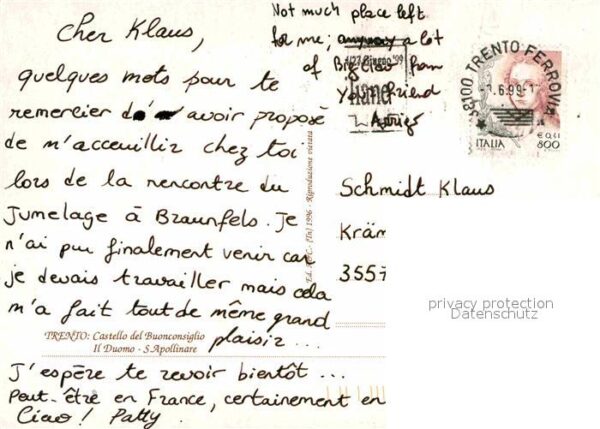 Cher Klaus,
quelques mots pour te
remercier d'avoir proposé
de m'acceuillir chez toi
lors de la rencontre du
Jumelage à Braunfels. Je
n'ai pu finalement venir car
je devais travailler mais cela
m'a fait tout de même grand
plaisir...
J'espère te revoir bientôt...
Peut-être en France, certainement en
Ciao! Patty.
Not much place left
for me; anyway a lot
of Big Ciao from
your friend
TRENTO: Castello del Buonconsiglio
Il Duomo - S.Apollinare
1996 - Riproduzione vietata
Schmidt Klaus
Kräm
3557
38100 TRENTO FERROVIA
6.99
ITALIA
€ 0,41
800
privacy protection
Datenschutz